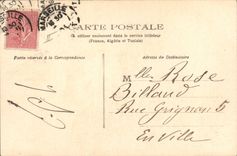 MARSEILLE
CARTE POSTALE
A utiliser seulement dans le service intérieur
(France, Algérie et Tunisie)
Partie réservée à la Correspondance
Adresse du Destinataire
Mlle Rose
Billaud
Rue Grignan 5
En Ville